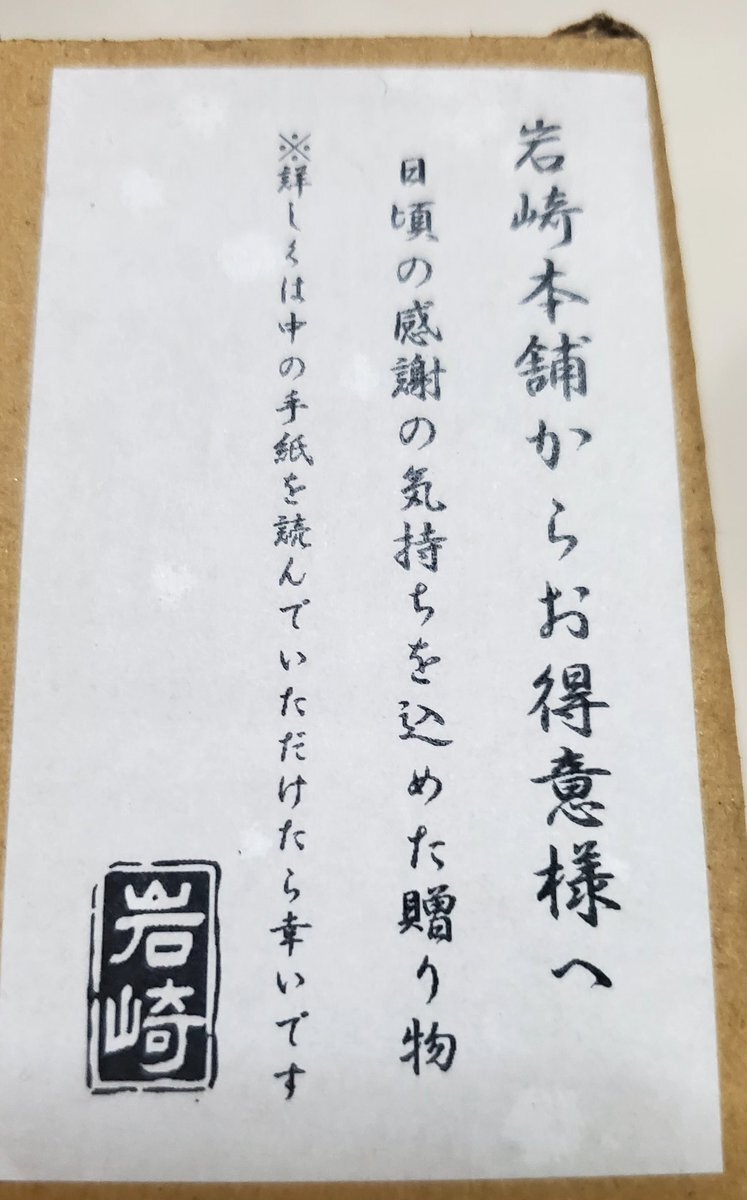 岩崎本舗からお得意様へ
日頃の感謝の気持ちを込めた贈り物
※詳しくは中の手紙を読んでいただけたら幸いです
岩崎